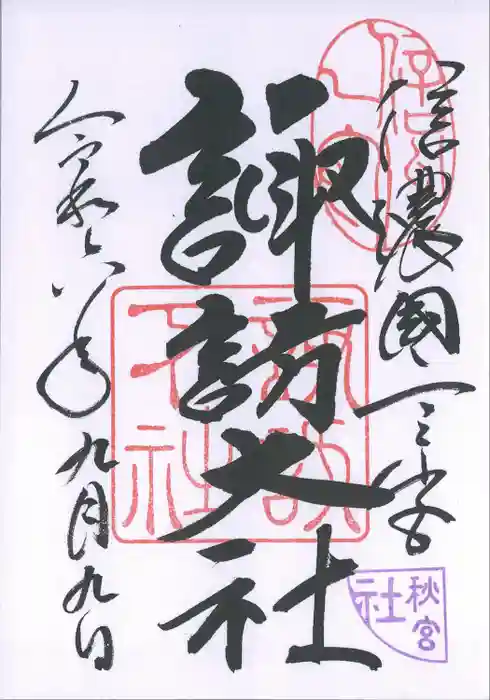 信濃國一之宮
諏訪大社
令和六年九月九日
秋宮
社